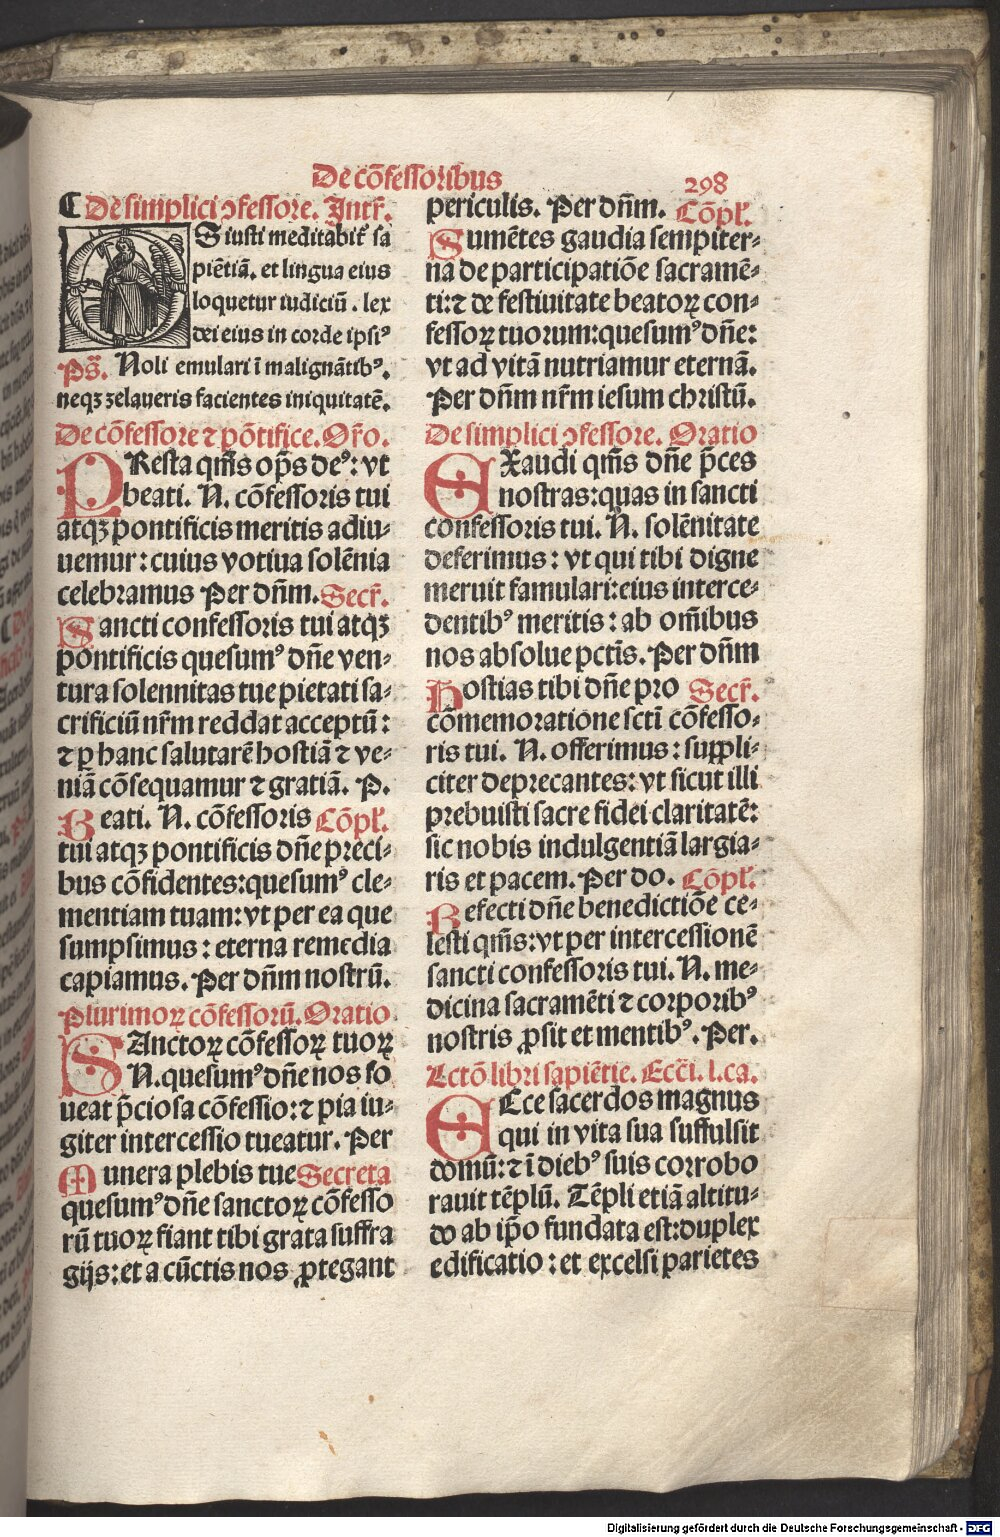 De cõfessoribus
298
¶ De simplici ↄfessore. Intr̃.
OS iusti meditabit᷑ sa
piẽtiã. et lingua eius
loquetur iudiciũ. lex
dei eius in corde ipsiꝰ
Ps̃. Noli emulari ĩ malignãtibꝰ.
neqꝫ zelaueris facientes iniquitatẽ.
De cõfessore ⁊ põtifice. Or̃o.
PResta qm̃s op̃s deꝰ: vt
beati. N. cõfessoris tui
atqꝫ pontificis meritis adiu-
uemur: cuius votiua solẽnia
celebramus Per dñm. Secr̃.
Sancti confessoris tui atqꝫ
pontificis quesumꝰ dñe ven-
tura solennitas tue pietati sa-
crificiũ nr̃m reddat acceptũ:
⁊ ꝑ hanc salutarẽ hostiã ⁊ ve-
niã cõsequamur ⁊ gratiã. P.
Beati. N. cõfessoris Cõpl̃.
tui atqꝫ pontificis dñe preci-
bus cõfidentes: quesumꝰ cle-
mentiam tuam: vt per ea que
sumpsimus: eterna remedia
capiamus. Per dñm nostrũ.
Plurimoꝝ cõfessorũ. Oratio
SAnctoꝝ cõfessoꝝ tuoꝝ
N. quesumꝰ dñe nos fo
ueat p̃ciosa cõfessio: ⁊ pia iu-
giter intercessio tueatur. Per
Munera plebis tue Secreta
quesumꝰ dñe sanctoꝝ cõfesso
rũ tuoꝝ fiant tibi grata suffra
gijs: et a cũctis nos ꝓtegant
periculis. Per dñm. Cõpl̃.
Sumẽtes gaudia sempiter-
na de participatiõe sacramẽ-
ti: ⁊ de festiuitate beatoꝝ con-
fessoꝝ tuorum: quesumꝰ dñe:
vt ad vitã nutriamur eternã.
Per dñm nr̃m iesum christũ.
De simplici ↄfessore. Oratio
EXaudi qm̃s dñe p̃ces
nostras: quas in sancti
confessoris tui. N. solẽnitate
deferimus: vt qui tibi digne
meruit famulari: eius interce-
dentibꝰ meritis: ab om̃ibus
nos absolue pctĩs. Per dñm
Hostias tibi dñe pro Secr̃.
cõmemoratione sctĩ cõfesso-
ris tui. N. offerimus: suppli-
citer deprecantes: vt sicut illi
prebuisti sacre fidei claritatẽ:
sic nobis indulgentiã largia-
ris et pacem. Per do. Cõpl̃.
Refecti dñe benedictiõe ce-
lesti qm̃s: vt per intercessionẽ
sancti confessoris tui. N. me-
dicina sacramẽti ⁊ corporibꝰ
nostris ꝓsit et mentibꝰ. Per.
Lctõ libri sapiẽtie. Ecci̇̃. l. ca.
ECce sacerdos magnus
qui in vita sua suffulsit
domũ: ⁊ ĩ diebꝰ suis corrobo
rauit tẽplũ. Tẽpli etiã altitu-
do ab ip̃o fundata est: duplex
edificatio: et excelsi parietes
Digitalisierung gefördert durch die Deutsche Forschungsgemeinschaft - DFG